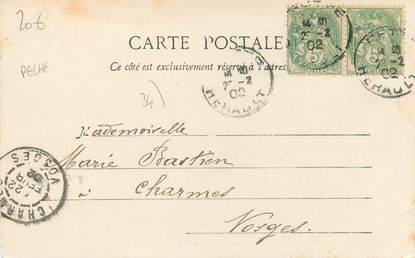 20€
PECHE
CARTE POSTALE
Ce côté est exclusivement réservé à l'adresse
34
HERAULT
02
HERAULT
02
Mademoiselle
Marie Bastien
à Charmes
Vosges.
CHARMES
22
FEVR
02
VOSGES